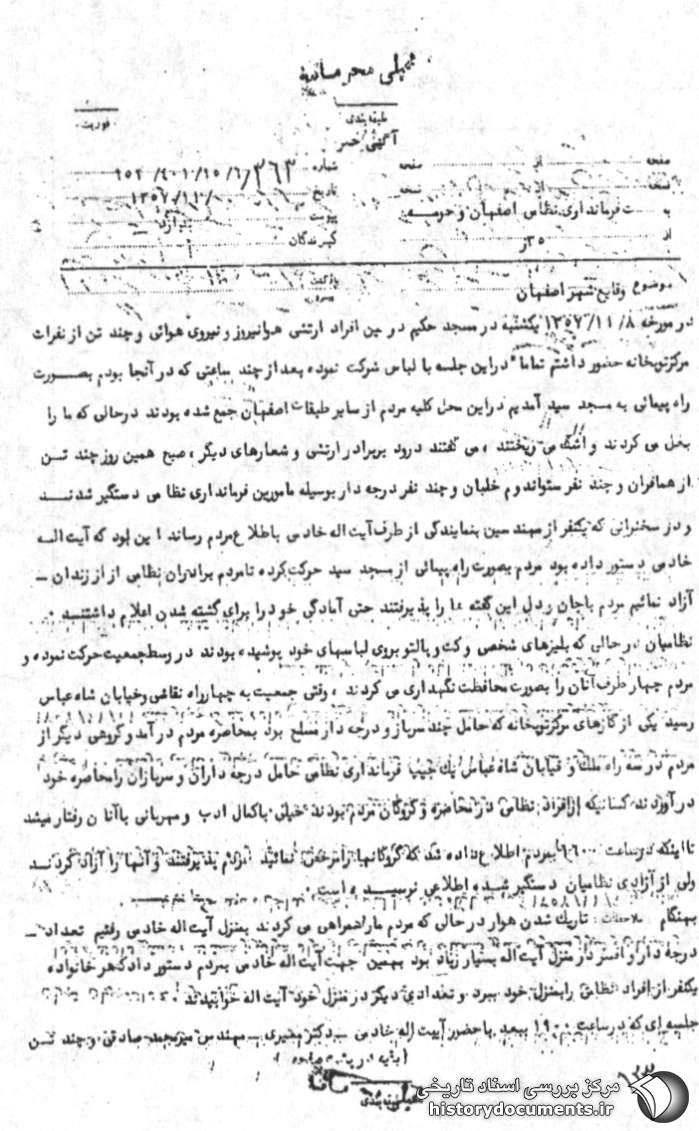 خیلی محرمانه
طبقه بندی
فوریت
آگهی خبر
صفحه از صفحه شماره
نسخه از نسخه تاریخ ۱۳۵۷/۱۱/
به فرمانداری نظامی اصفهان و حومه پیوست ندارد
از ۳۵ر گیرندگان
موضوع وقایع شهر اصفهان
در مورخه ۱۳۵۷/۱۱/۸ یکشنبه در مسجد حکیم در بین افراد ارتشی هوانیروز و نیروی هوائی و چند تن از نفرات
مرکز توپخانه حضور داشتم تماما" در این جلسه با لباس شرکت نموده بعد از چند ساعتی که در آنجا بودم بصورت
راه پیمائی به مسجد سید آمدیم در این محل کلیه مردم از سایر طبقات اصفهان جمع شده بودند در حالی که ما را
بغل می کردند و اشک می ریختند ، می گفتند درود بر برادر ارتشی و شعارهای دیگر ، صبح همین روز چند تن
از همافران و چند نفر ستواندوم خلبان و چند نفر درجه دار بوسیله مامورین فرمانداری نظامی دستگیر شدند
و در سخنرانی که یکنفر از مهندسین بنمایندگی از طرف آیت اله خادمی باطلاع مردم رساند این بود که آیت اله
خادمی دستور داده بود مردم بصورت راه پیمائی از مسجد سید حرکت کرده تا مردم برادران نظامی از از زندان ـ
آزاد نمائیم مردم باجان و دل این گفته ها را پذیرفتند حتی آمادگی خود را برای کشته شدن اعلام داشتند .
نظامیان در حالی که بلیزهای شخصی و کت و پالتو بروی لباسهای خود پوشیده بودند در وسط جمعیت حرکت نموده و
مردم چهار طرف آنان را بصورت محافظت نگهداری می کردند ، وقتی جمعیت به چهارراه نقاشی و خیابان شاه عباس
رسید یکی از گازهای مرکز توپخانه که حامل چند سرباز و درجه دار مسلح بود بمحاصره مردم در آمد و گروهی دیگر از
مردم در سه راه ملک و خیابان شاه عباس یک جیپ فرمانداری نظامی حامل درجه داران و سربازان را محاصره خود
در آوردند کسانیکه از افراد نظامی در محاصره و گروگان مردم بودند خیلی باکمال ادب و مهربانی با آنان رفتار میشد
تا اینکه در ساعت ۱۶۰۰ بمردم اطلاع داده شد که گروگانها را مرخص نمائید مردم پذیرفتند و آنها را آزاد کردند
ولی از آزادی نظامیان دستگیر شده اطلاعی نرسیده است .
بهنگام ملاحظات تاریک شدن هوا در حالی که مردم ما را همراهی می کردند بمنزل آیت اله خادمی رفتیم تعداد ـ
درجه دار و افسر در منزل آیت اله بسیار زیاد بود بهمین جهت آیت اله خادمی بمردم دستور داد که هر خانواده
یکنفر از افراد نظامی را بمنزل خود ببرد و تعدادی دیگر در منزل خود آیت اله خوابیدند .
جلسه ای که در ساعت ۱۹۰۰ ببعد با حضور آیت اله خادمی ـ دکتر بشیری ـ مهندس میرمحمد صادقی و چند تن
(بقیه در پشت صفحه)
طبقه بندی
مرکز بررسی اسناد تاریخی
historydocuments.ir